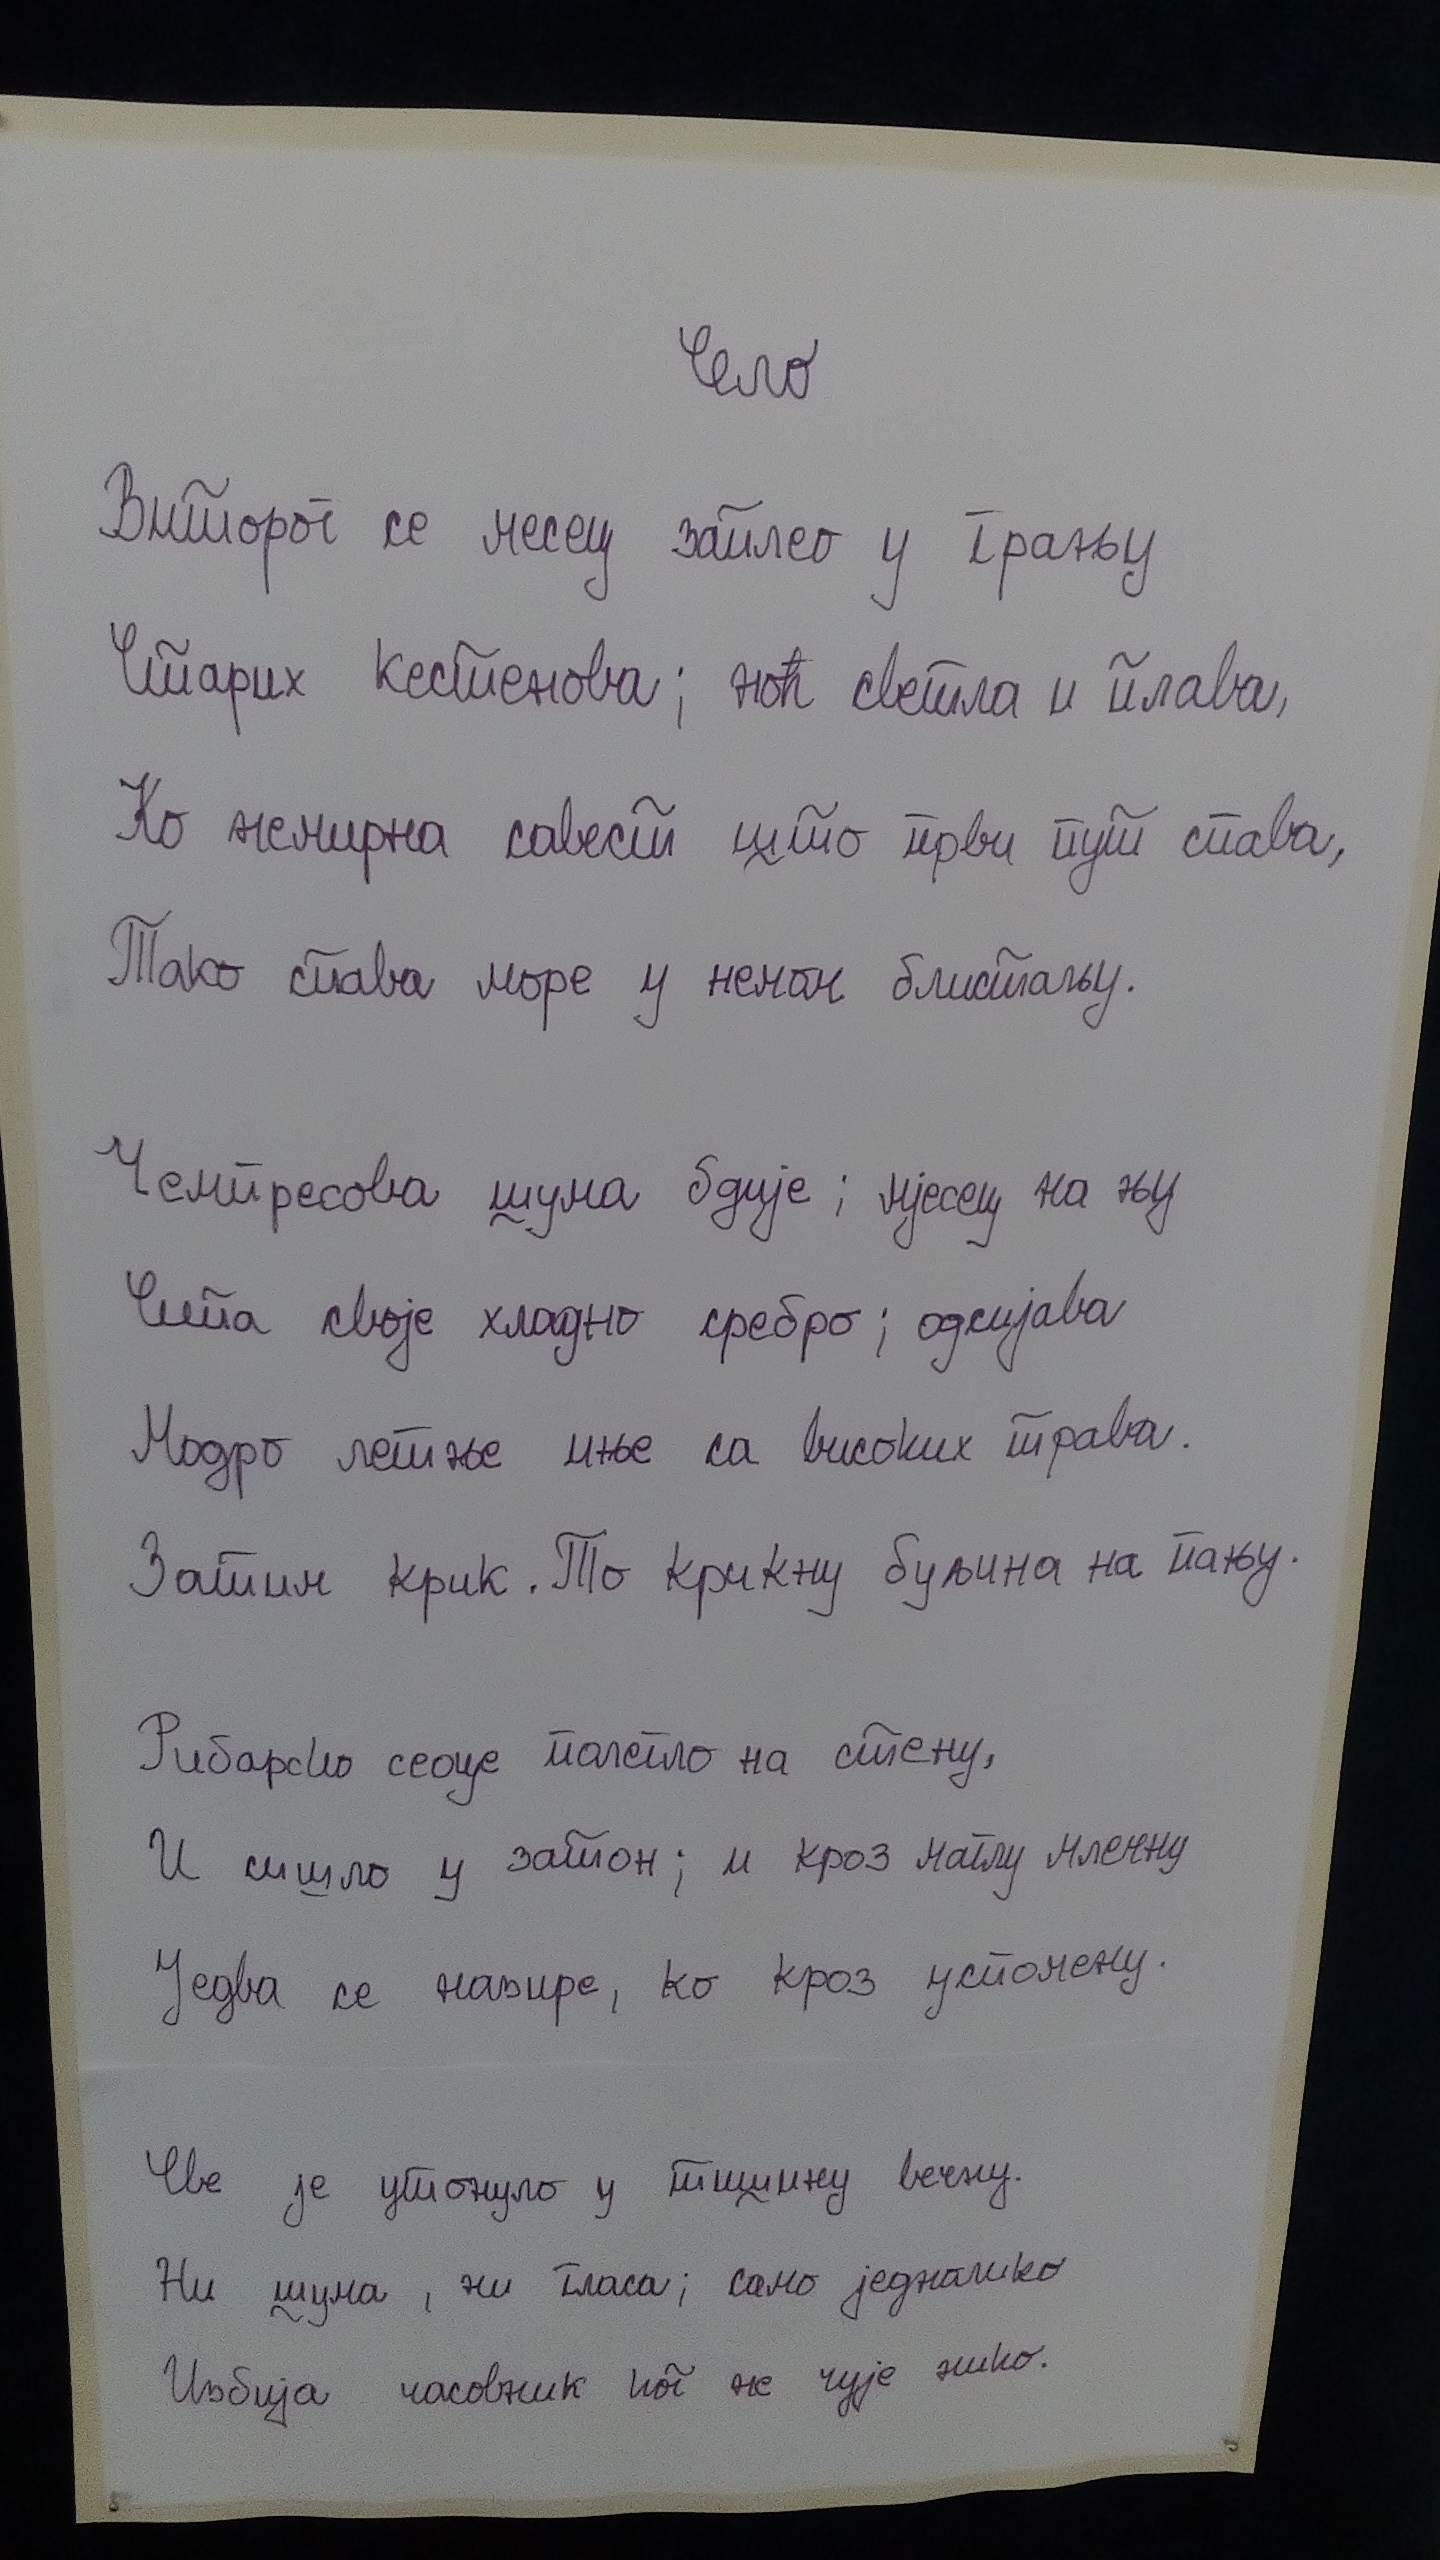 Село
Виторог се месец заплео у грању
Старих кестенова; ноћ светла и плава,
Ко немирна савест што први пут спава,
Тако спава море у немом блистању.
Чемпресова шума бдије; мјесец на њу
Сипа своје хладно сребро; одсијава
Модро летње иње са високих трава.
Затим крик. То крикну буљина на пању.
Рибарско сеоце полегло на стену,
И сишло у затон; и кроз маглу млечну
Једва се назире, ко кроз успомену.
Све је утонуло у тишину вечну.
Ни шума, ни гласа; само једнолико
Избија часовник ког не чује нико.